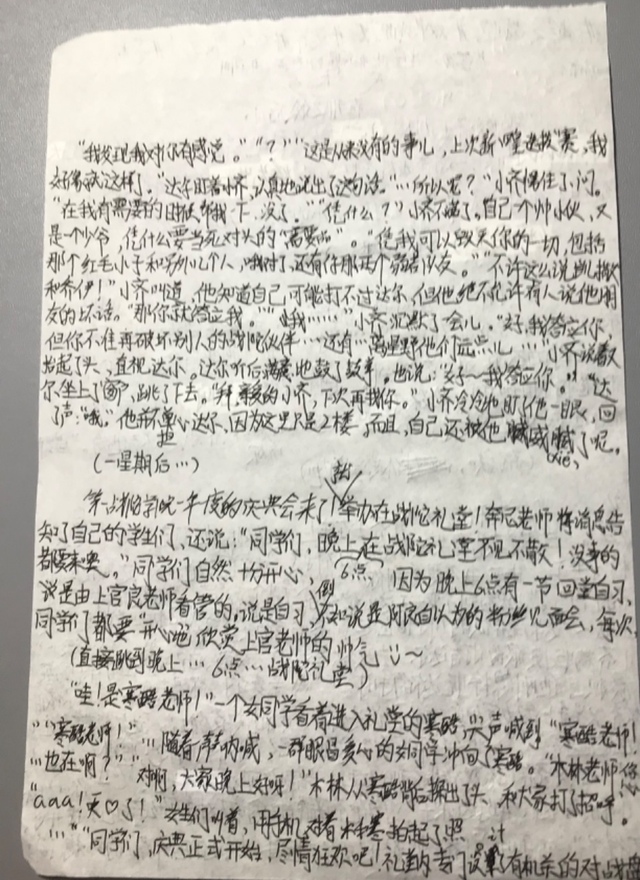 "我发现我对你有感觉。""?""这是从来没有的事儿,上次新 选拔"赛,我
好像就这样了。"达尔盯着小齐,认真地说出了这句话。"…所以呢?"小齐愣住了,问。
"在我有需要的时候帮我一下,没了。""凭什么?"小齐不 了。自己一个帅小伙,又
是一个少爷,凭什么要当死对头的"需要品"。"凭我可以毁灭你的一切,包括
那个红毛小子和另外几个人,哦对了,还有你那两个 队友。""不许这么说
和乔伊!"小齐叫道,他知道自己可能打不过达尔,但他绝不允许有人说他朋
友的坏话。"那你就答应我。""我……"小齐沉默了会儿。"好,我答应你,
但你不准再破坏别人的战陀伙伴…还有…离星野他们远点儿…"小齐说着
抬起了头,直视达尔。达尔听后满意地鼓了鼓掌。他说:"好~我答应你。"达
尔坐上了窗,跳了下去。"拜,亲爱的小齐,下次再找你。"小齐冷冷地盯了他一眼,回
了声:"哦。"他并不担心达尔,因为这里只是2楼,而且,自己还被他威 了呢。
(一星期后…)
第一战陀学院一年一度的庆典会来了!举办在战陀礼堂!奔尼老师将消息告
知了自己的学生们,还说:"同学们,晚上6点在战陀礼堂不见不散!没事的
都要来噢。"同学们自然十分开心,因为晚上6点有一节回堂自习,
说是由上官良老师看管的,说是自习,倒不如说是 的粉丝见面会,每次
同学们都要"开心"地欣赏上官老师的帅气 ~
(直接跳到晚上…6点…战陀礼堂)
"哇!是寒酷老师!"一个女同学看着进入礼堂的寒酷,尖声喊到"寒酷老师!
""寒酷老师!"…随着声声呐喊,一群眼冒爱心的女同学冲向了寒酷。"木林老师!您
也在啊?""对啊,大家晚上好呀!"木林从寒酷背后探出了头,和大家打了招呼。
"aaa!死♡了!"女生们叫着,用手机对着木林寒拍起了照
…""同学们,庆典正式开始,尽情狂欢吧!礼堂内专门设计了有机关的对战盘